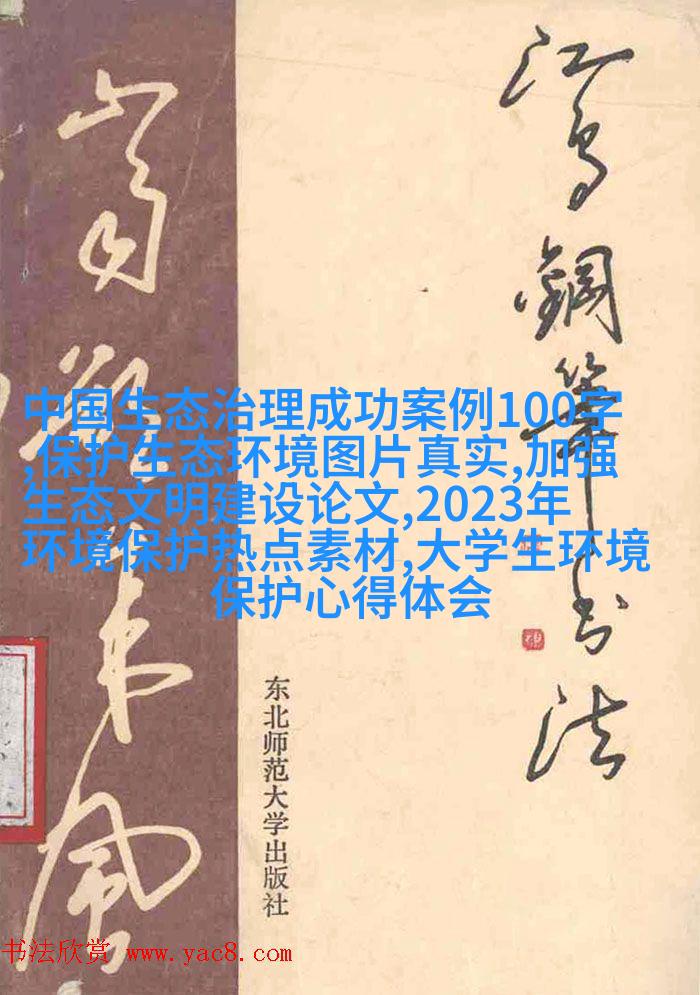 江鸟鋼筆书法
来風
中国生态治理成功案例100字
,保护生态环境图片真实,加强
生态文明建设论文,2023年
环境保护热点素材,大学生环境
保护心得体会
东北师范大学出版社
书法欣赏 www.yac8.com